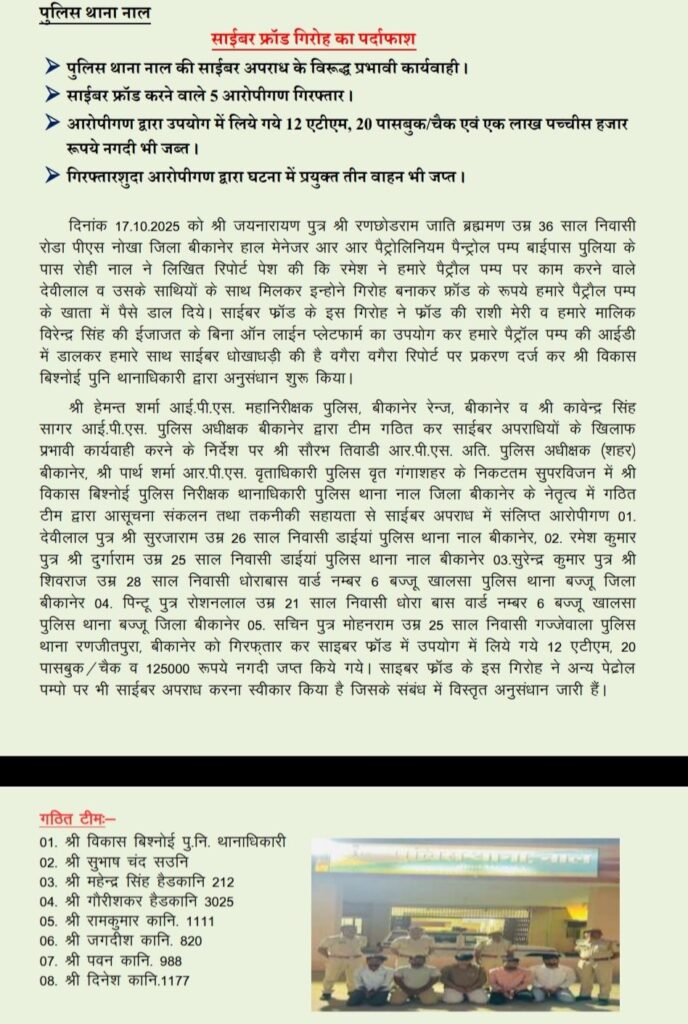 पुलिस थाना नाल
साईबर फ्रॉड गिरोह का पर्दाफाश
➢ पुलिस थाना नाल की साईबर अपराध के विरूद्ध प्रभावी कार्यवाही।
➢ साईबर फ्रॉड करने वाले 5 आरोपीगण गिरफ्तार।
➢ आरोपीगण द्वारा उपयोग में लिये गये 12 एटीएम, 20 पासबुक/चैक एवं एक लाख पच्चीस हजार
रूपये नगदी भी जब्त।
➢ गिरफ्तारशुदा आरोपीगण द्वारा घटना में प्रयुक्त तीन वाहन भी जप्त।
दिनांक 17.10.2025 को श्री जयनारायण पुत्र श्री रणछोडराम जाति ब्रह्ममण उम्र 36 साल निवासी
रोडा पीएस नोखा जिला बीकानेर हाल मेनेजर आर आर पैट्रोलिनियम पैन्ट्रोल पम्प बाईपास पुलिया के
पास रोही नाल ने लिखित रिपोर्ट पेश की कि रमेश ने हमारे पैट्रौल पम्प पर काम करने वाले
देवीलाल व उसके साथियों के साथ मिलकर इन्होने गिरोह बनाकर फ्रॉड के रूपये हमारे पैट्रौल पम्प
के खाता में पैसे डाल दिये। साईबर फ्रॉड के इस गिरोह ने फ्रॉड की राशी मेरी व हमारे मालिक
विरेन्द्र सिंह की ईजाजत के बिना ऑन लाईन प्लेटफार्म का उपयोग कर हमारे पैट्रॉल पम्प की आईडी
में डालकर हमारे साथ साईबर धोखाधड़ी की है वगैरा वगैरा रिपोर्ट पर प्रकरण दर्ज कर श्री विकास
बिश्नोई पुनि थानाधिकारी द्वारा अनुसंधान शुरू किया।
श्री हेमन्त शर्मा आई.पी.एस. महानिरीक्षक पुलिस, बीकानेर रेन्ज, बीकानेर व श्री कावेन्द्र सिंह
सागर आई.पी.एस. पुलिस अधीक्षक बीकानेर द्वारा टीम गठित कर साईबर अपराधियों के खिलाफ
प्रभावी कार्यवाही करने के निर्देश पर श्री सौरभ तिवाडी आर.पी.एस. अति. पुलिस अधीक्षक (शहर)
बीकानेर, श्री पार्थ शर्मा आर.पी.एस. वृताधिकारी पुलिस वृत गंगाशहर के निकटतम सुपरविजन में श्री
विकास बिश्नोई पुलिस निरीक्षक थानाधिकारी पुलिस थाना नाल जिला बीकानेर के नेतृत्व में गठित
टीम द्वारा आसूचना संकलन तथा तकनीकी सहायता से साईबर अपराध में संलिप्त आरोपीगण 01.
देवीलाल पुत्र श्री सुरजाराम उम्र 26 साल निवासी डाईयां पुलिस थाना नाल बीकानेर, 02. रमेश कुमार
पुत्र श्री दुर्गाराम उम्र 25 साल निवासी डाईयां पुलिस थाना नाल बीकानेर 03.सुरेन्द्र कुमार पुत्र श्री
शिवराज उम्र 28 साल निवासी धोराबास वार्ड नम्बर 6 बज्जू खालसा पुलिस थाना बज्जू जिला
बीकानेर 04. पिन्टू पुत्र रोशनलाल उम्र 21 साल निवासी धोरा बास वार्ड नम्बर 6 बज्जू खालसा
पुलिस थाना बज्जू जिला बीकानेर 05. सचिन पुत्र मोहनराम उम्र 25 साल निवासी गज्जेवाला पुलिस
थाना रणजीतपुरा, बीकानेर को गिरफ्तार कर साइबर फ्रॉड में उपयोग में लिये गये 12 एटीएम, 20
पासबुक/चैक व 125000 रूपये नगदी जप्त किये गये। साइबर फ्रॉड के इस गिरोह ने अन्य पेट्रोल
पम्पो पर भी साईबर अपराध करना स्वीकार किया है जिसके संबंध में विस्तृत अनुसंधान जारी हैं।
गठित टीमः–
01. श्री विकास बिश्नोई पु.नि. थानाधिकारी
02. श्री सुभाष चंद सउनि
03. श्री महेन्द्र सिंह हैडकानि 212
04. श्री गौरीशकर हैडकानि 3025
05. श्री रामकुमार कानि. 1111
06. श्री जगदीश कानि. 820
07. श्री पवन कानि. 988
08. श्री दिनेश कानि.1177